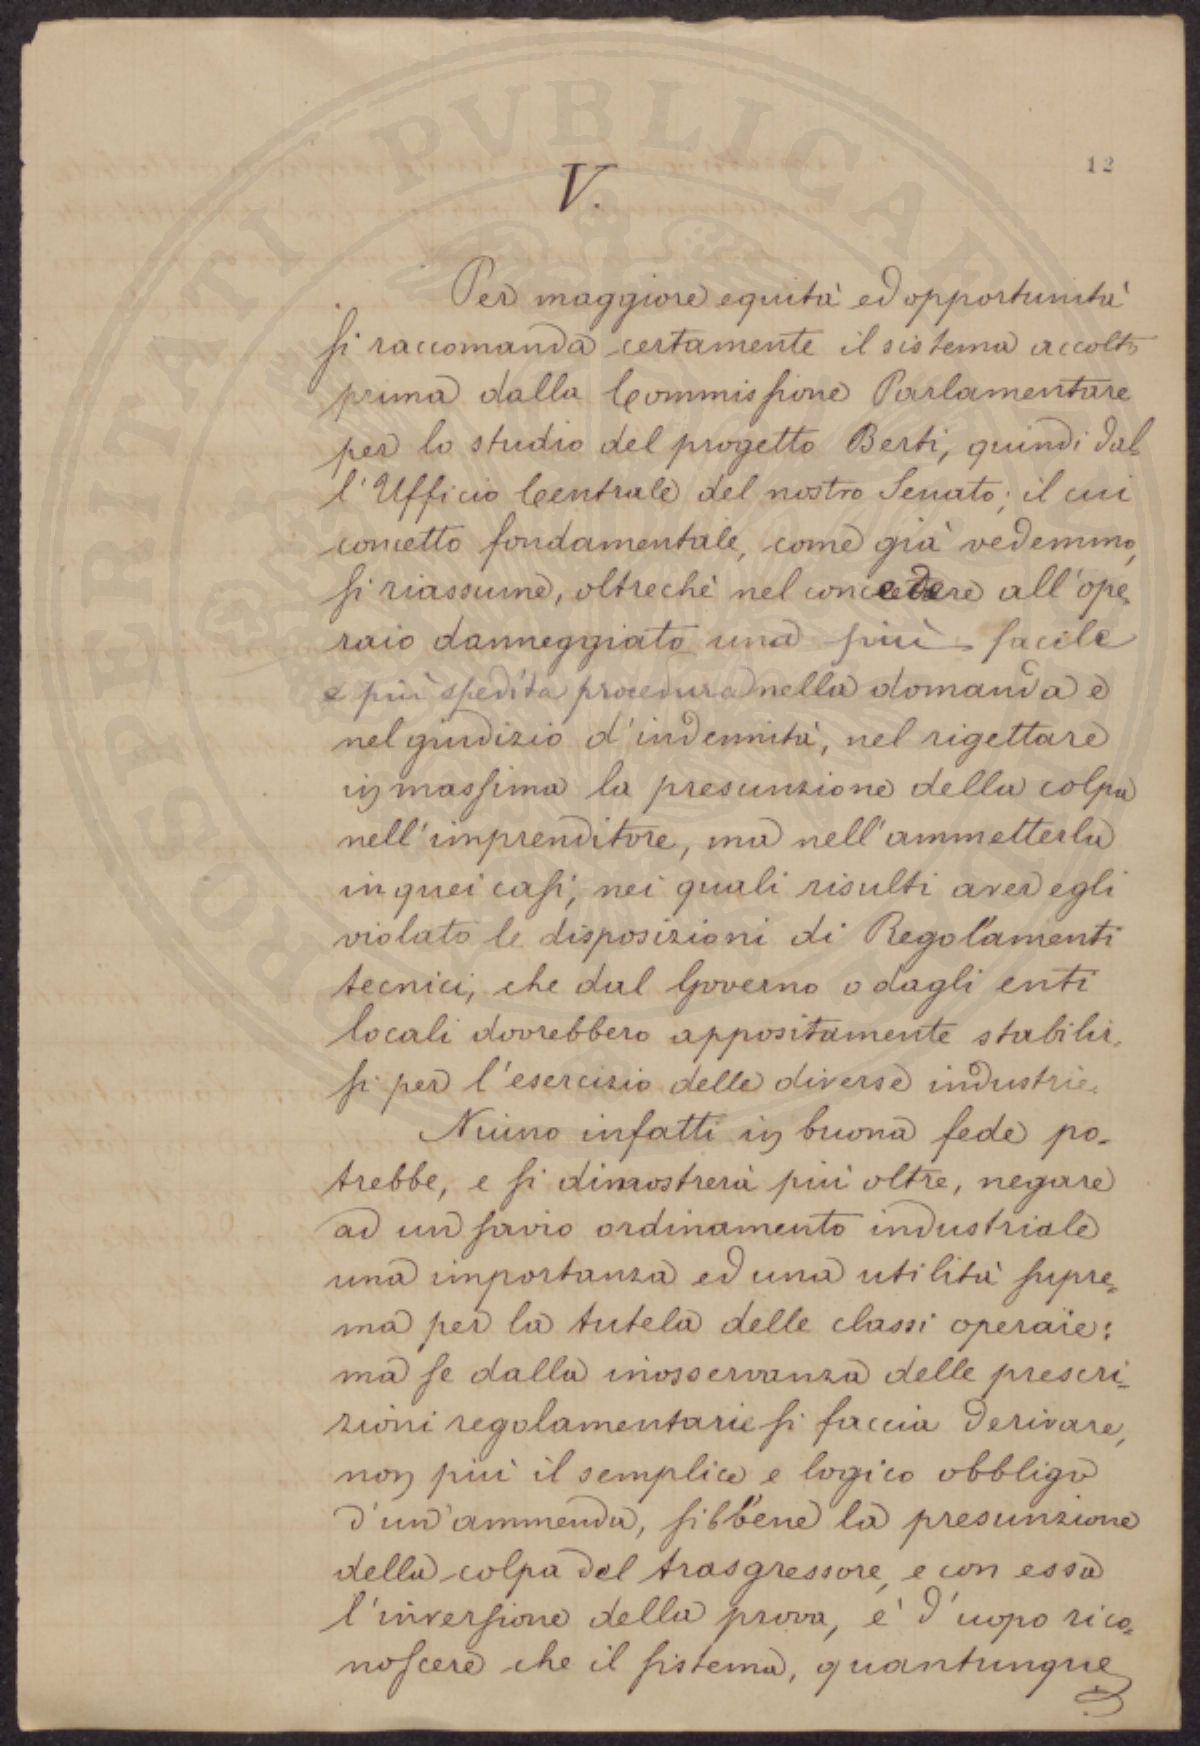 PROSPERITATI PVBLICAE
12
V.
Per maggiore equità ed opportunità
si raccomanda certamente il sistema accolto
prima dalla Commissione Parlamentare
per lo studio del progetto Berti, quindi dal-
l'Ufficio Centrale del nostro Senato; il cui
concetto fondamentale, come già vedemmo,
si riassume, oltreché nel concedere all'ope-
raio danneggiato una più facile
e più spedita procedura nella domanda e
nel giudizio d'indennità, nel rigettare
in massima la presunzione della colpa
nell'imprenditore, ma nell'ammetterla
in quei casi, nei quali risulti aver egli
violato le disposizioni di Regolamenti
tecnici, che dal Governo o dagli enti
locali dovrebbero appositamente stabilir-
si per l'esercizio delle diverse industrie.
Niuno infatti in buona fede po-
trebbe, e si dimostrerà più oltre, negare
ad un savio ordinamento industriale
una importanza ed una utilità supre-
ma per la tutela delle classi operaie:
ma se dalla inosservanza delle prescri-
zioni regolamentarie si faccia derivare,
non più il semplice e logico obbligo
d'un'ammenda, sibbene la presunzione
della colpa del trasgressore, e con essa
l'inversione della prova, è d'uopo rico-
noscere che il sistema, quantunque